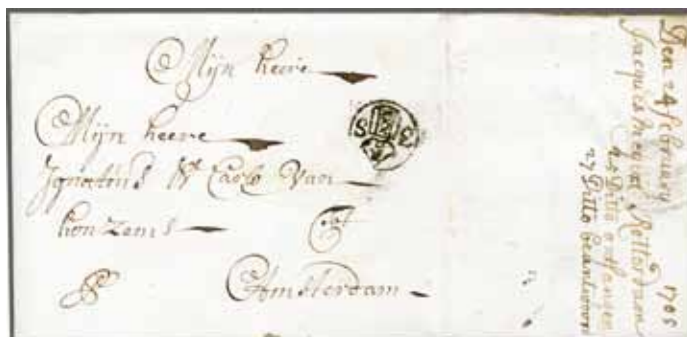 Mijn heere
Mijn heere
Ignatius & Carlo Van
honzems
Tot
Amsterdam
3 S
Den 24 february 1705
Jacques Rotterdam
25 Ditto ontfangen
27 Ditto beantwoort